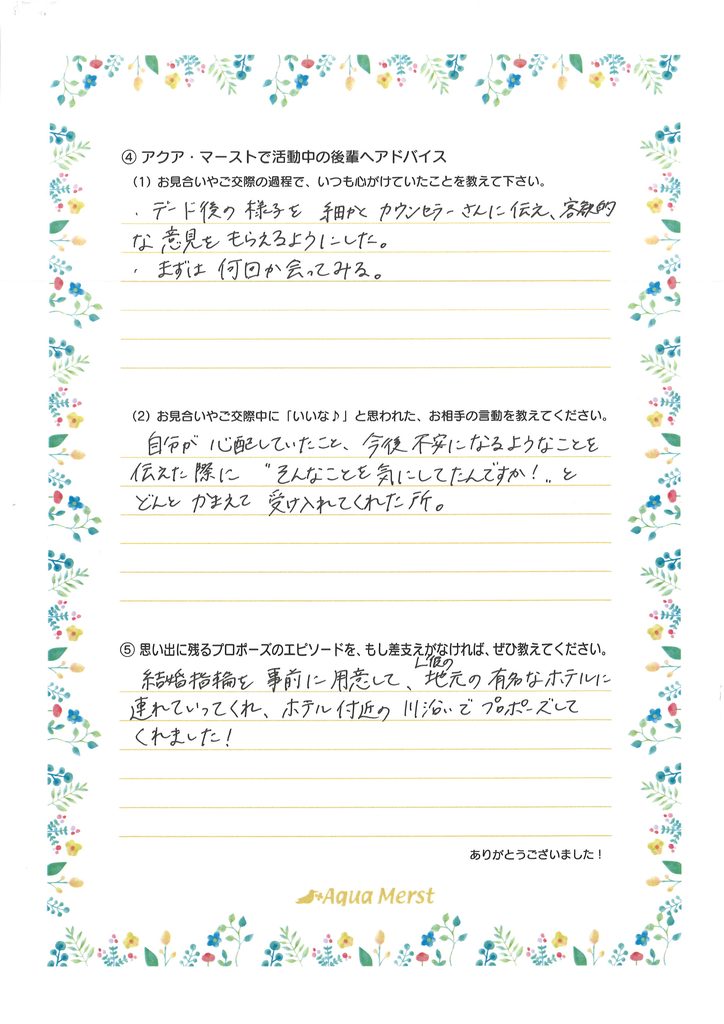 ④ アクア・マーストで活動中の後輩へアドバイス
(1) お見合いやご交際の過程で、いつも心がけていたことを教えて下さい。
・デート後の様子を 細かく カウンセラーさんに伝え、客観的
な意見をもらえるようにした。
・まずは 何回か会ってみる。
(2) お見合いやご交際中に「いいな♪」と思われた、お相手の言動を教えてください。
自分が 心配していたこと、今後 不安になるようなことを
伝えた際に "そんなことを気にしてたんですか！" と
どんと かまえて 受け入れてくれた所。
⑤ 思い出に残るプロポーズのエピソードを、もし差支えがなければ、ぜひ教えてください。
結婚指輪を 事前に 用意して、彼の地元の 有名なホテルに
連れていってくれ、ホテル付近の 川沿いで プロポーズして
くれました！
ありがとうございました！
Aqua Merst